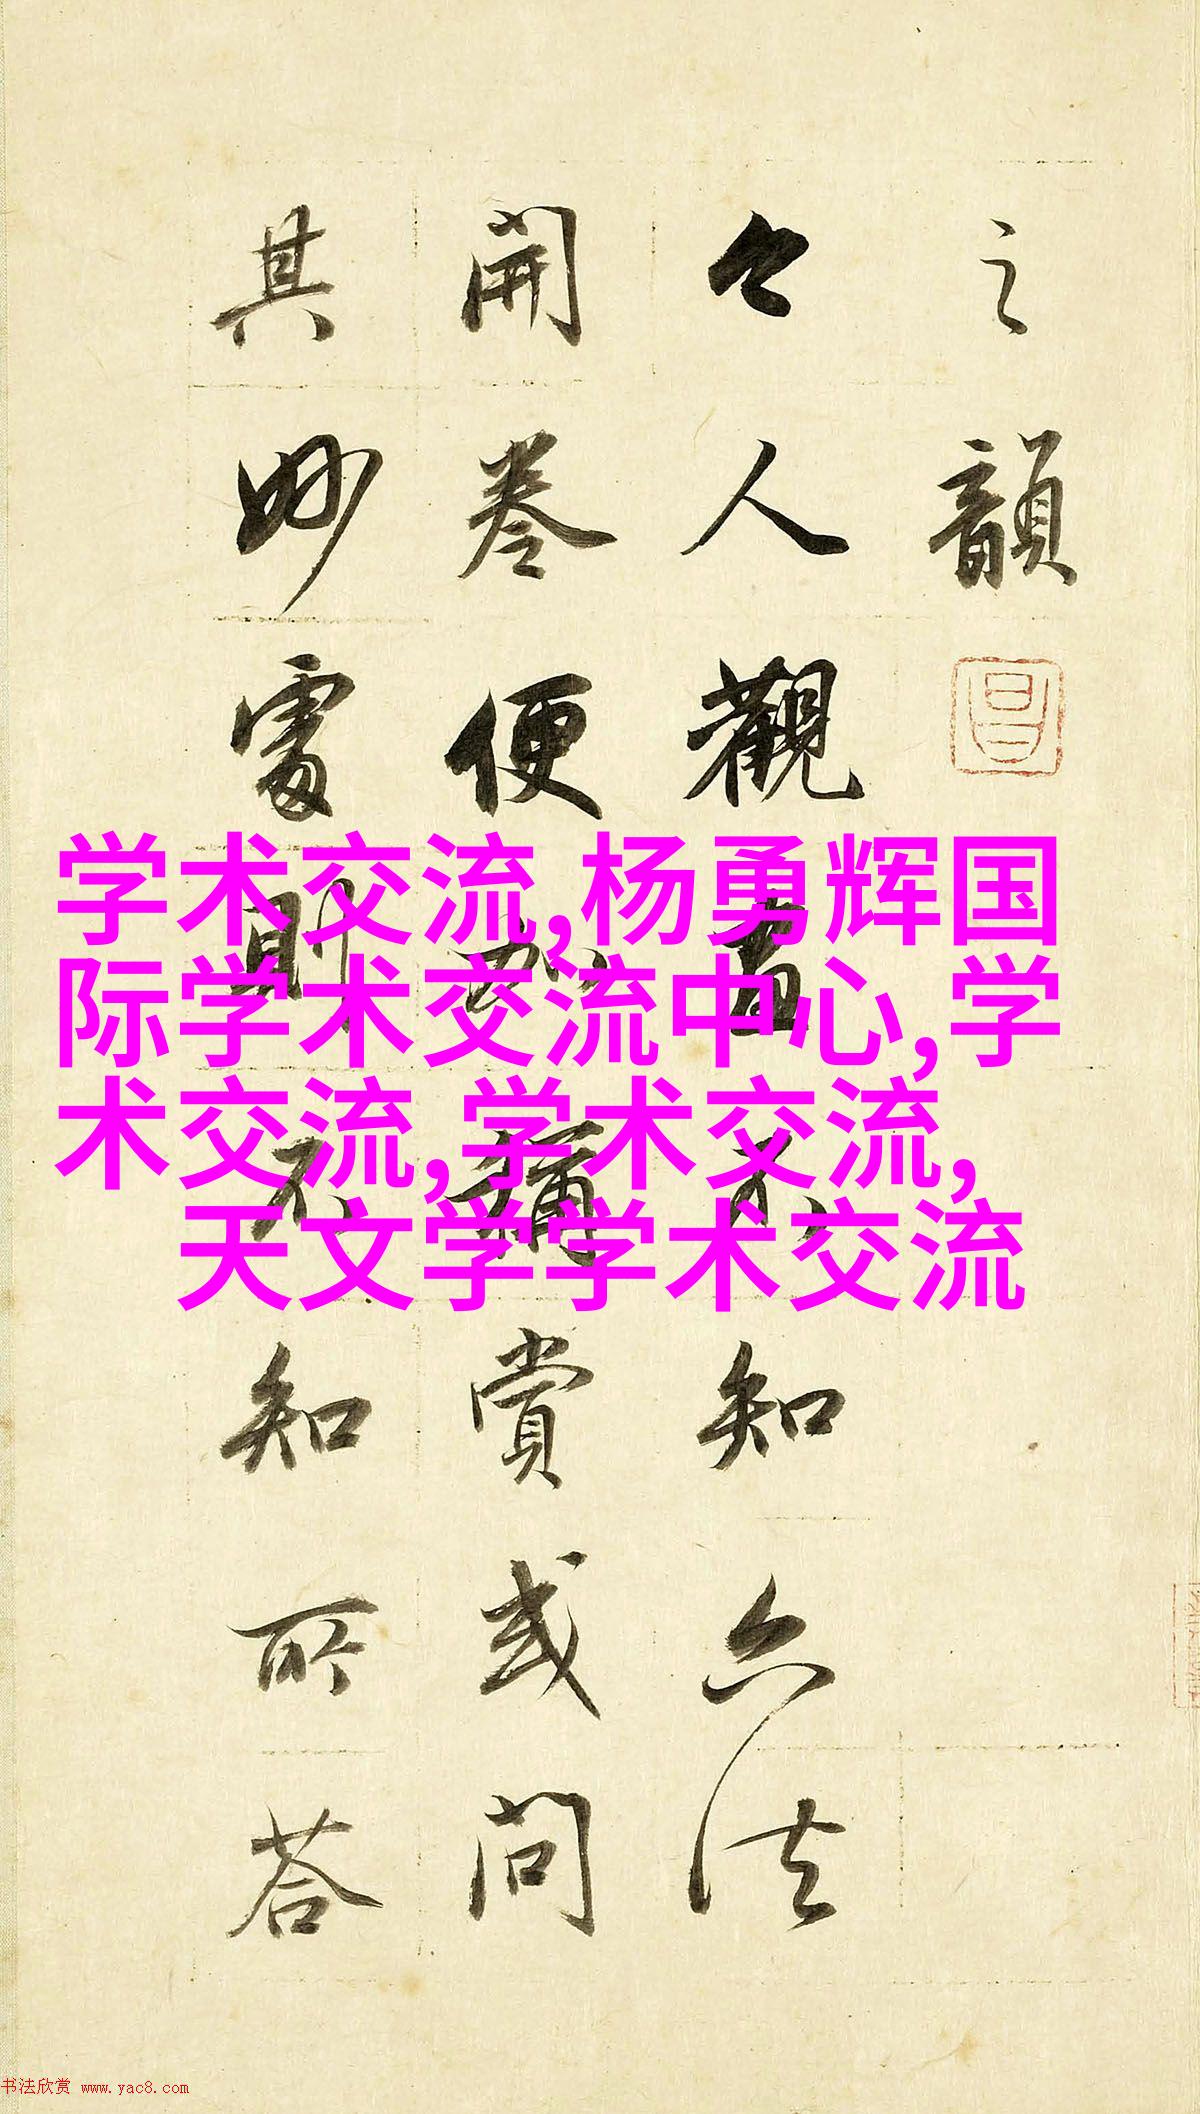 之韻
今人觀畫不知六法
開卷便加稱賞或問
其妙處則不知所答
学术交流,杨勇辉国
际学术交流中心,学
术交流,学术交流,
天文学学术交流
书法欣赏 www.yac8.com